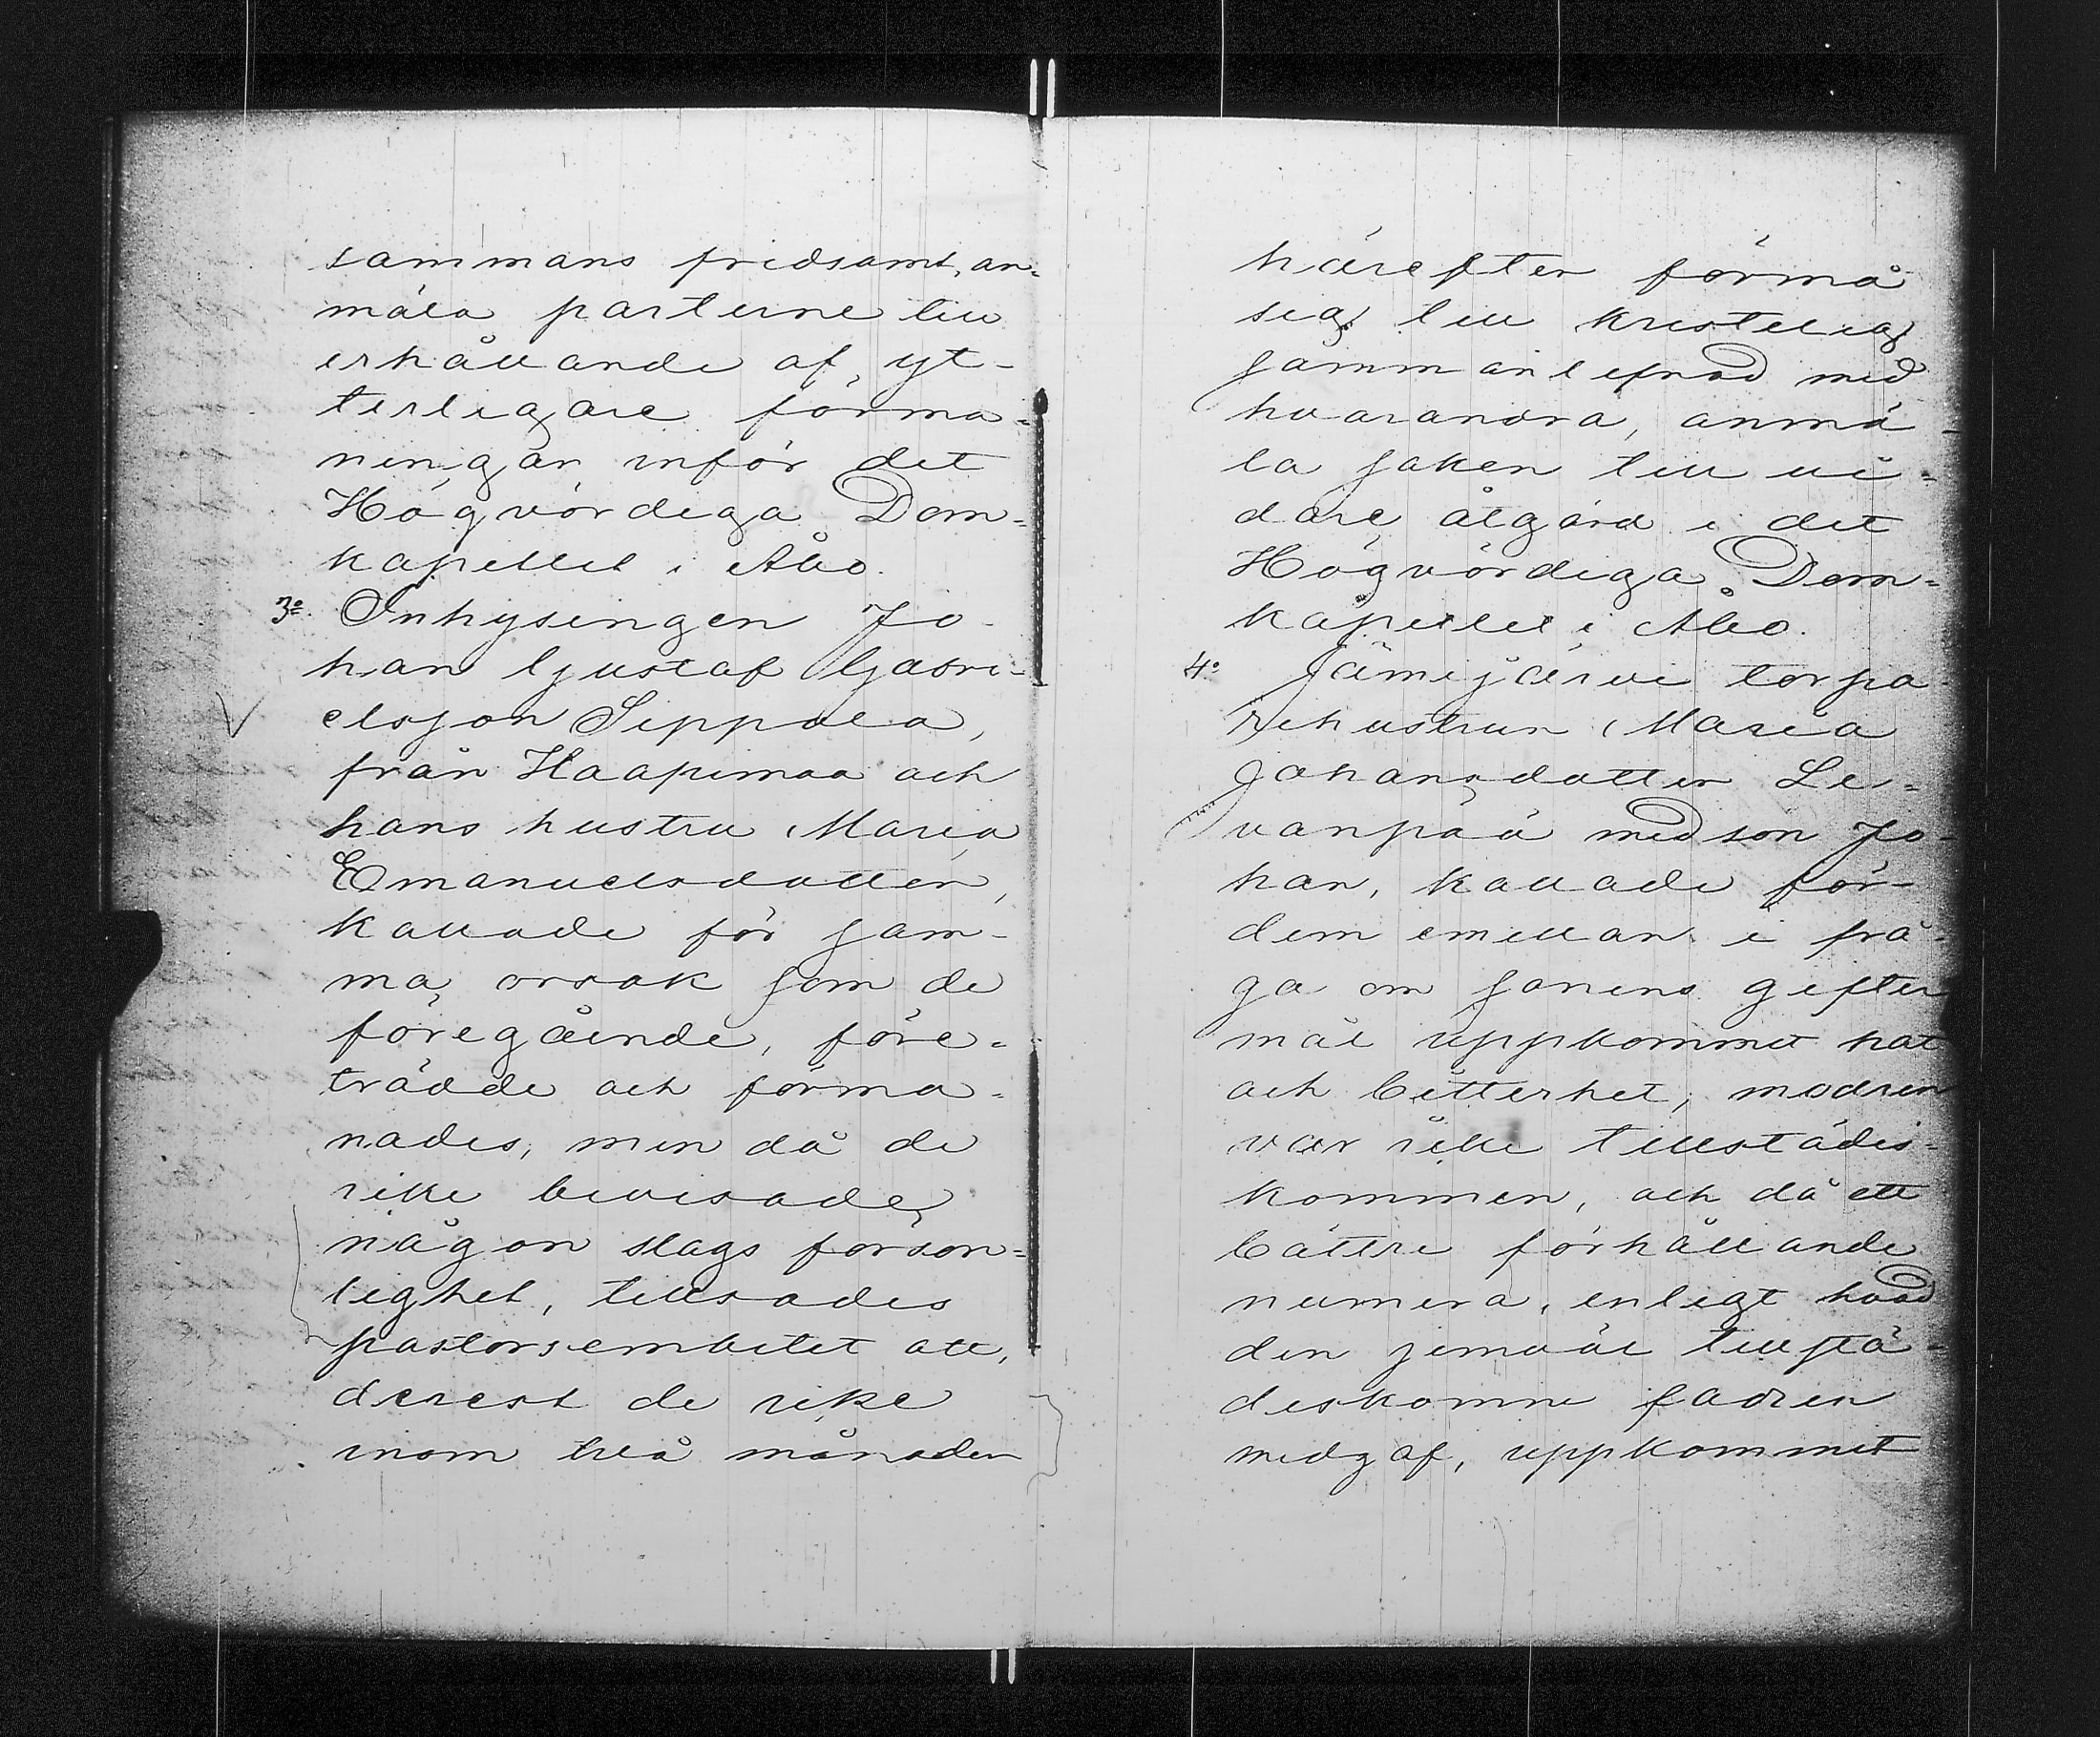 sammans fridsamt, an=
mäla parterne till
erhållande af yt-
terligare förma=
ningar inför det
Högvördiga Dom=
kapitlet i Åbo.
3o. Inhysingen Jo-
han Gustaf Gabri=
elsson Seppälä,
från Haapimaa och
hans hustru Maria
Emanuelsdotter,
kallade för sam-
ma orsak som de
föregående, före=
trädde och förma=
nades, men då de
icke bevisade
någon slags forson=
lighet, tillsades
pastorsembetet att,
derest de icke
inom två månader
härefter förmå
sig till kristelig
sammanlefnad med
hvarandra, anmä=
la saken till vi=
dare åtgärd i det
Högvördiga Dom=
kapitlet i Åbo.
4o Jämijärvi torpa-
rehustrun Maria
Johansdotter Le=
vanpää med son Jo-
han, kallade för
dem emellan i frå-
ga om sonens gifter
mål uppkommet hat
och bitterhet; modren
var icke tillstädes=
kommen, och då ett
bättre förhållande
numera, enligt hvad
den jemväl tillstä=
deskomne fadren
medgaf, uppkommit